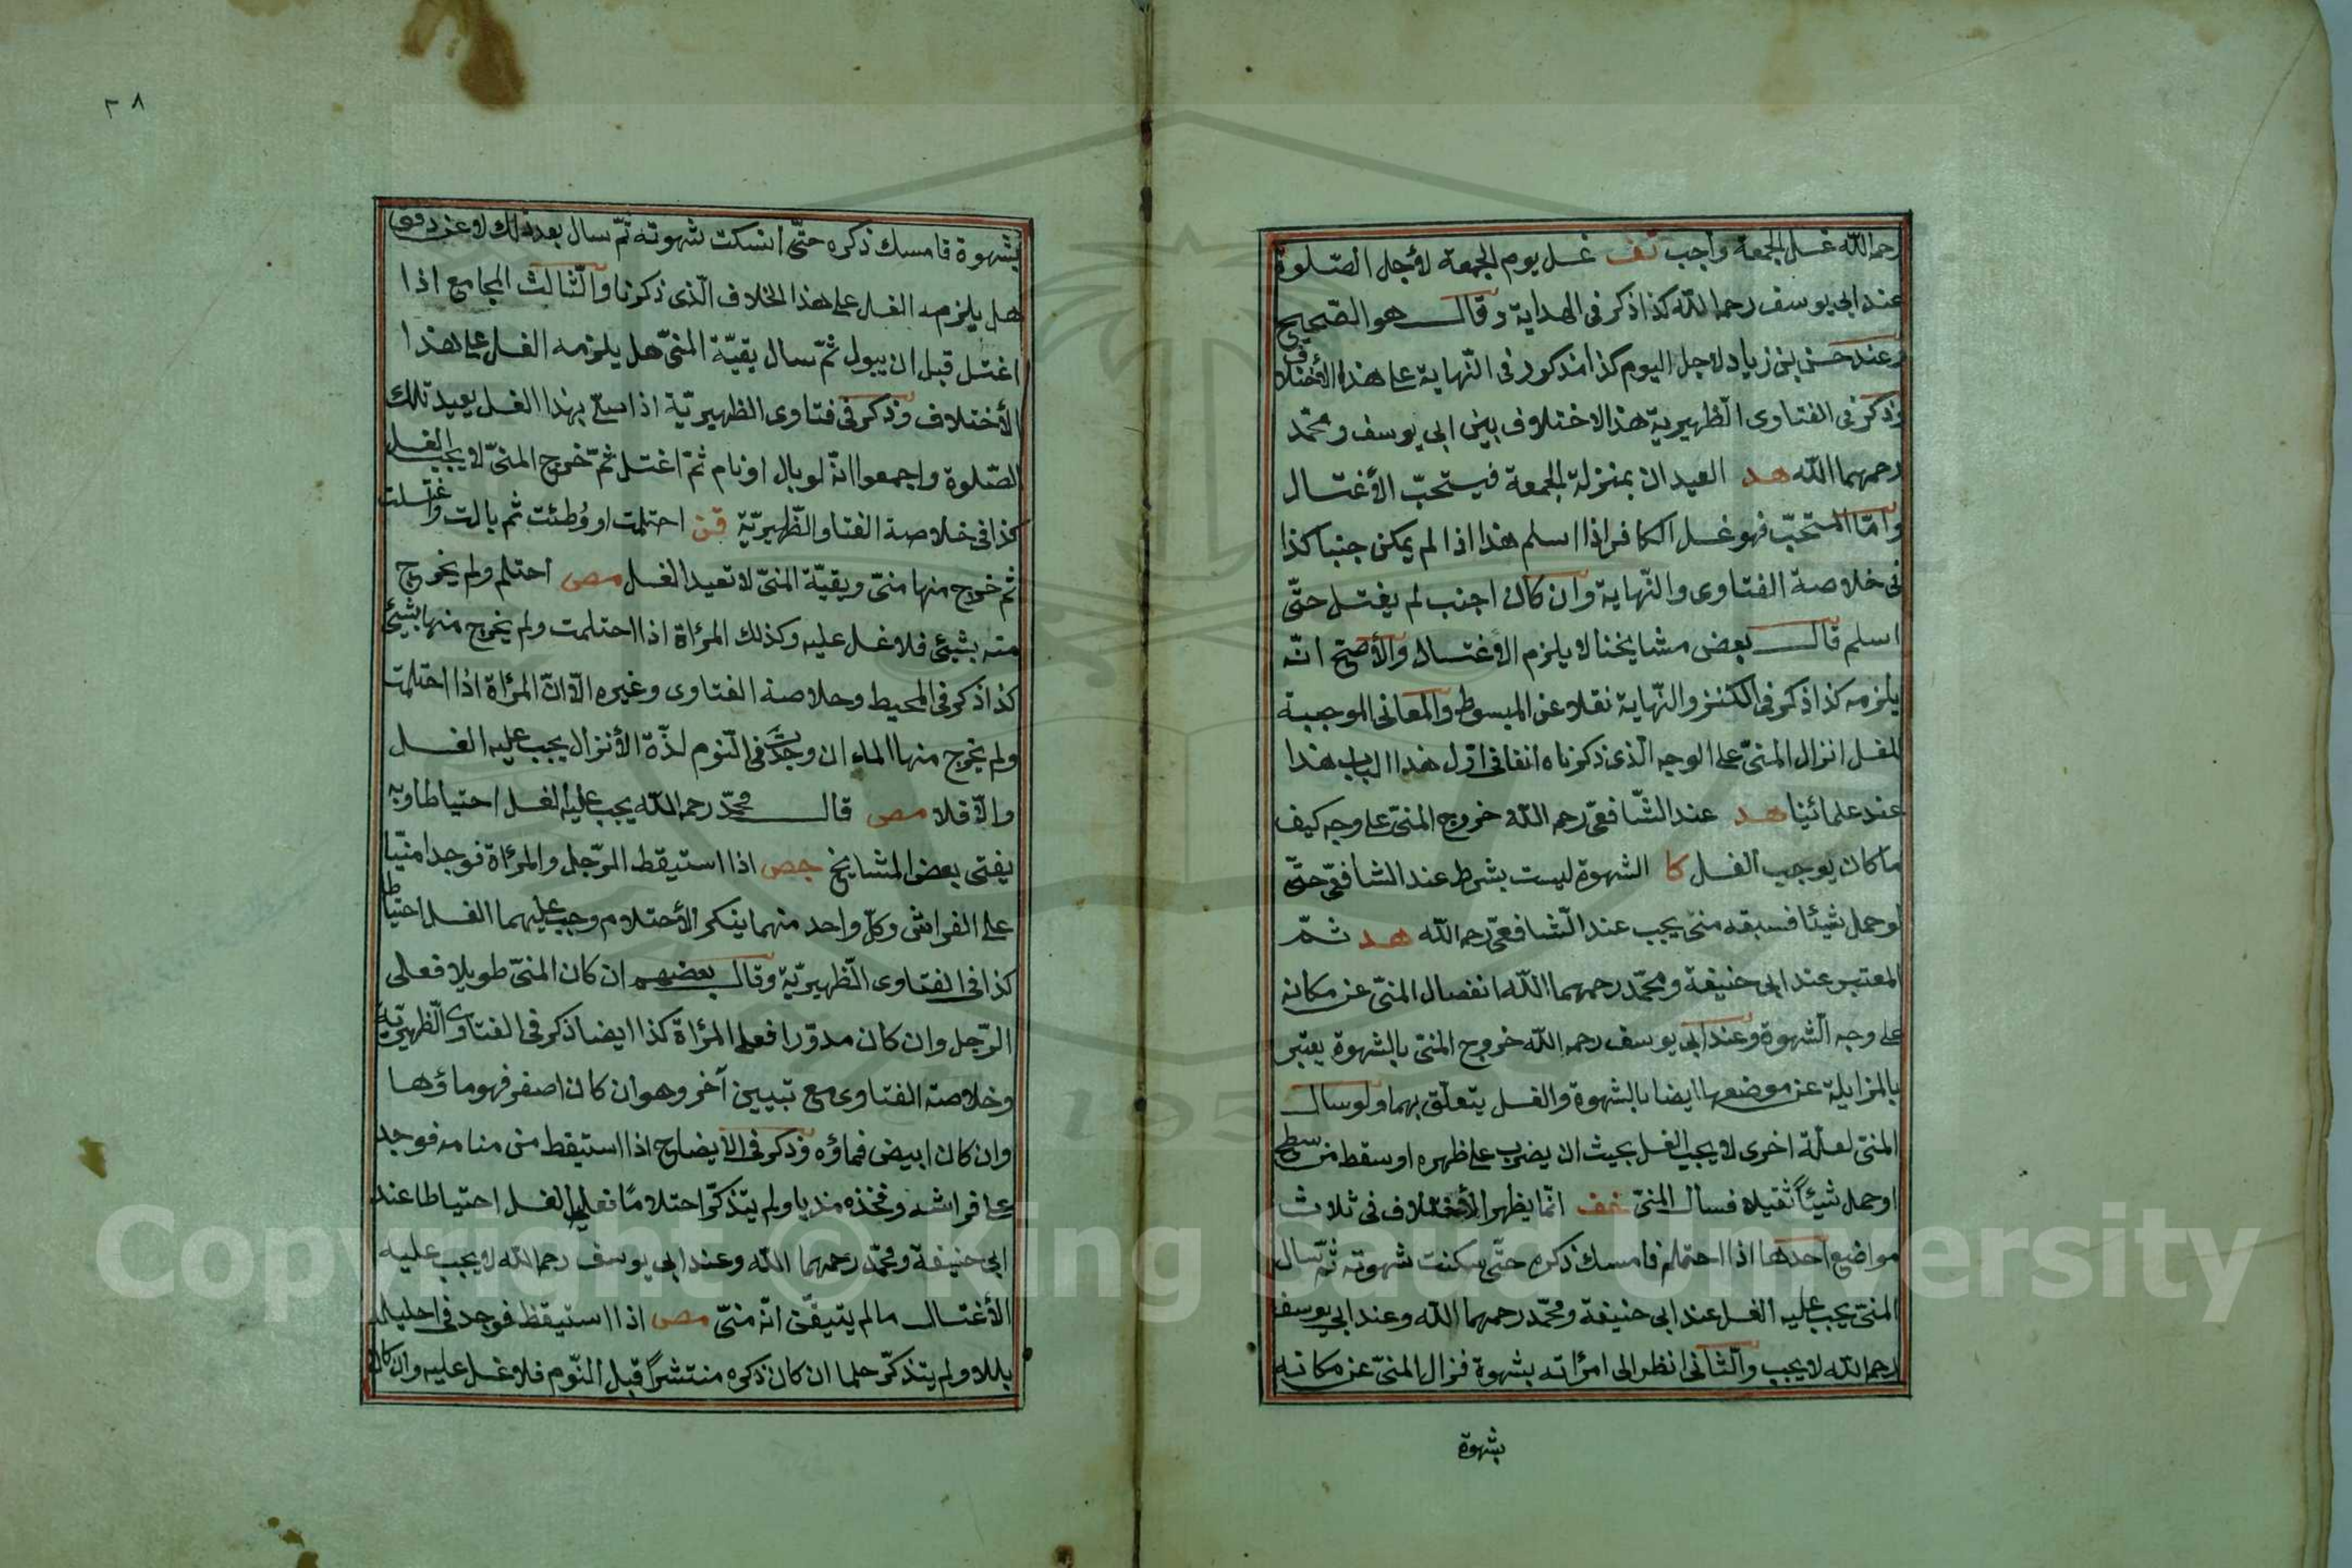 رحمه الله غسل الجمعة واجب تف غسل يوم الجمعة لأجل الصّلوة
عند ابى يوسف رحمه الله كذا ذكر فى الهداية وقال هو الصّحيح
وعند حسن بن زياد لاجل اليوم كذا مذكور فى النّهاية على هذا الأختلاف
وذكر فى الفتاوى الظهيريّة هذا الاختلاف بين ابى يوسف ومحمّد
رحمهما الله هد العيدان بمنزلة الجمعة فيستحبّ الأغتسال
وامّا المستحبّ فهو غسل الكافر اذا اسلم هذا اذا لم يكن جنبا كذا
فى خلاصة الفتاوى والنّهاية وان كان اجنب لم يغتسل حتّى
اسلم قال بعض مشايخنا لا يلزم الاغتسال والأصحّ انّه
يلزمه كذا ذكر فى الكنز والنّهاية نقلا عن المبسوط والمعانى الموجبة
للغسل انزال المنىّ على الوجه الّذى ذكرناه انفا فى اوّل هذا الباب هذا
عند علمائنا هد عند الشّافعىّ رحمه الله خروج المنىّ على وجه كيف
ما كان يوجب الغسل كا الشهوة ليست بشرط عند الشافعىّ حتّى
لو حمل شيئا فسبقه منى يجب عند الشّافعىّ رحمه الله هد ثمّ
المعتبر عند ابى حنيفة ومحمّد رحمهما الله انفصال المنىّ عن مكانه
على وجه الشهوة وعند ابى يوسف رحمه الله خروج المنىّ بالشهوة يعتبر
بالمزايلة عن موضعها ايضا بالشهوة والغسل يتعلّق بهما ولو سال
المنىّ لعلّة اخرى لا يجب الغسل بحيث ان يضرب على ظهره او سقط من سطح
او حمل شيئاً ثقيلا فسال المنىّ خف انّما يظهر الأختلاف فى ثلاث
مواضع احدها اذا احتلم فامسك ذكره حتّى سكنت شهوته ثمّ سال
المنىّ يجب عليه الغسل عند ابى حنيفة ومحمّد رحمهما الله وعند ابى يوسف
رحمه الله لا يجب والثّانى نظر الى امرأته بشهوة فزال المنىّ عن مكانه
بشهوة
٣٨
بشهوة فامسك ذكره حتّى انسكت شهوته ثمّ سال بعد ذلك لا عن دفق
هل يلزمه الغسل على هذا الخلاف الّذى ذكرنا والثّالث المجامع اذا
اغتسل قبل ان يبول ثمّ سال بقيّة المنىّ هل يلزمه الغسل على هذا
الأختلاف وذكر فى فتاوى الظهيريّة اذا صلى بهذا الغسل يعيد تلك
الصّلوة واجمعوا انّه لو بال او نام ثمّ اغتسل ثمّ خرج المنىّ لا يجب الغسل
كذا فى خلاصة الفتاو الظّهيريّة قن احتلمت او وُطئت ثم بالت واغتسلت
ثم خرج منها منىّ وبقيّة المنىّ لا تعيد الغسل مص احتلم ولم يخرج
منه بشيئ فلا غسل عليه وكذلك المرأة اذا احتلمت ولم يخرج منها بشيئ
كذا ذكر فى المحيط وخلاصة الفتاوى وغيره الّا انّ المرأة اذا احتلمت
ولم يخرج منها الماء ان وجدت فى النّوم لذّة الأنزال يجب عليه الغسل
والّا فلا مص قال محمّد رحمه الله يجب عليه الغسل احتياطا وبه
يفتى بعض المشايخ جص اذا استيقظ الرّجل والمرأة فوجدا منيّا
على الفراش وكلّ واحد منهما ينكر الأحتلام وجب عليهما الغسل احتياطا
كذا فى الفتاوى الظّهيريّة وقال بعضهم ان كان المنىّ طويلا فعلى
الرّجل وان كان مدوّرا فعلى المرأة كذا ايضا ذكر فى الفتاوى الظّهيريّة
وخلاصة الفتاوى مع تبيين آخر وهو ان كان اصفر فهو ماؤها
وان كان ابيض فماؤه وذكر فى الايضاح اذا استيقظ من منامه فوجد
على فراشه وفخذه مذيا ولم يتذكّر احتلامًا فعليه الغسل احتياطا عند
ابى حنيفة ومحمّد رحمهما الله وعند ابى يوسف رحمه الله لا يجب عليه
الأغتسال ما لم يتيقّن انّه منىّ مص اذا استيقظ فوجد فى احليله
بللا ولم يتذكّر حلما ان كان ذكره منتشرًا قبل النّوم فلا غسل عليه وان كان
Copyright © King Saud University
1957